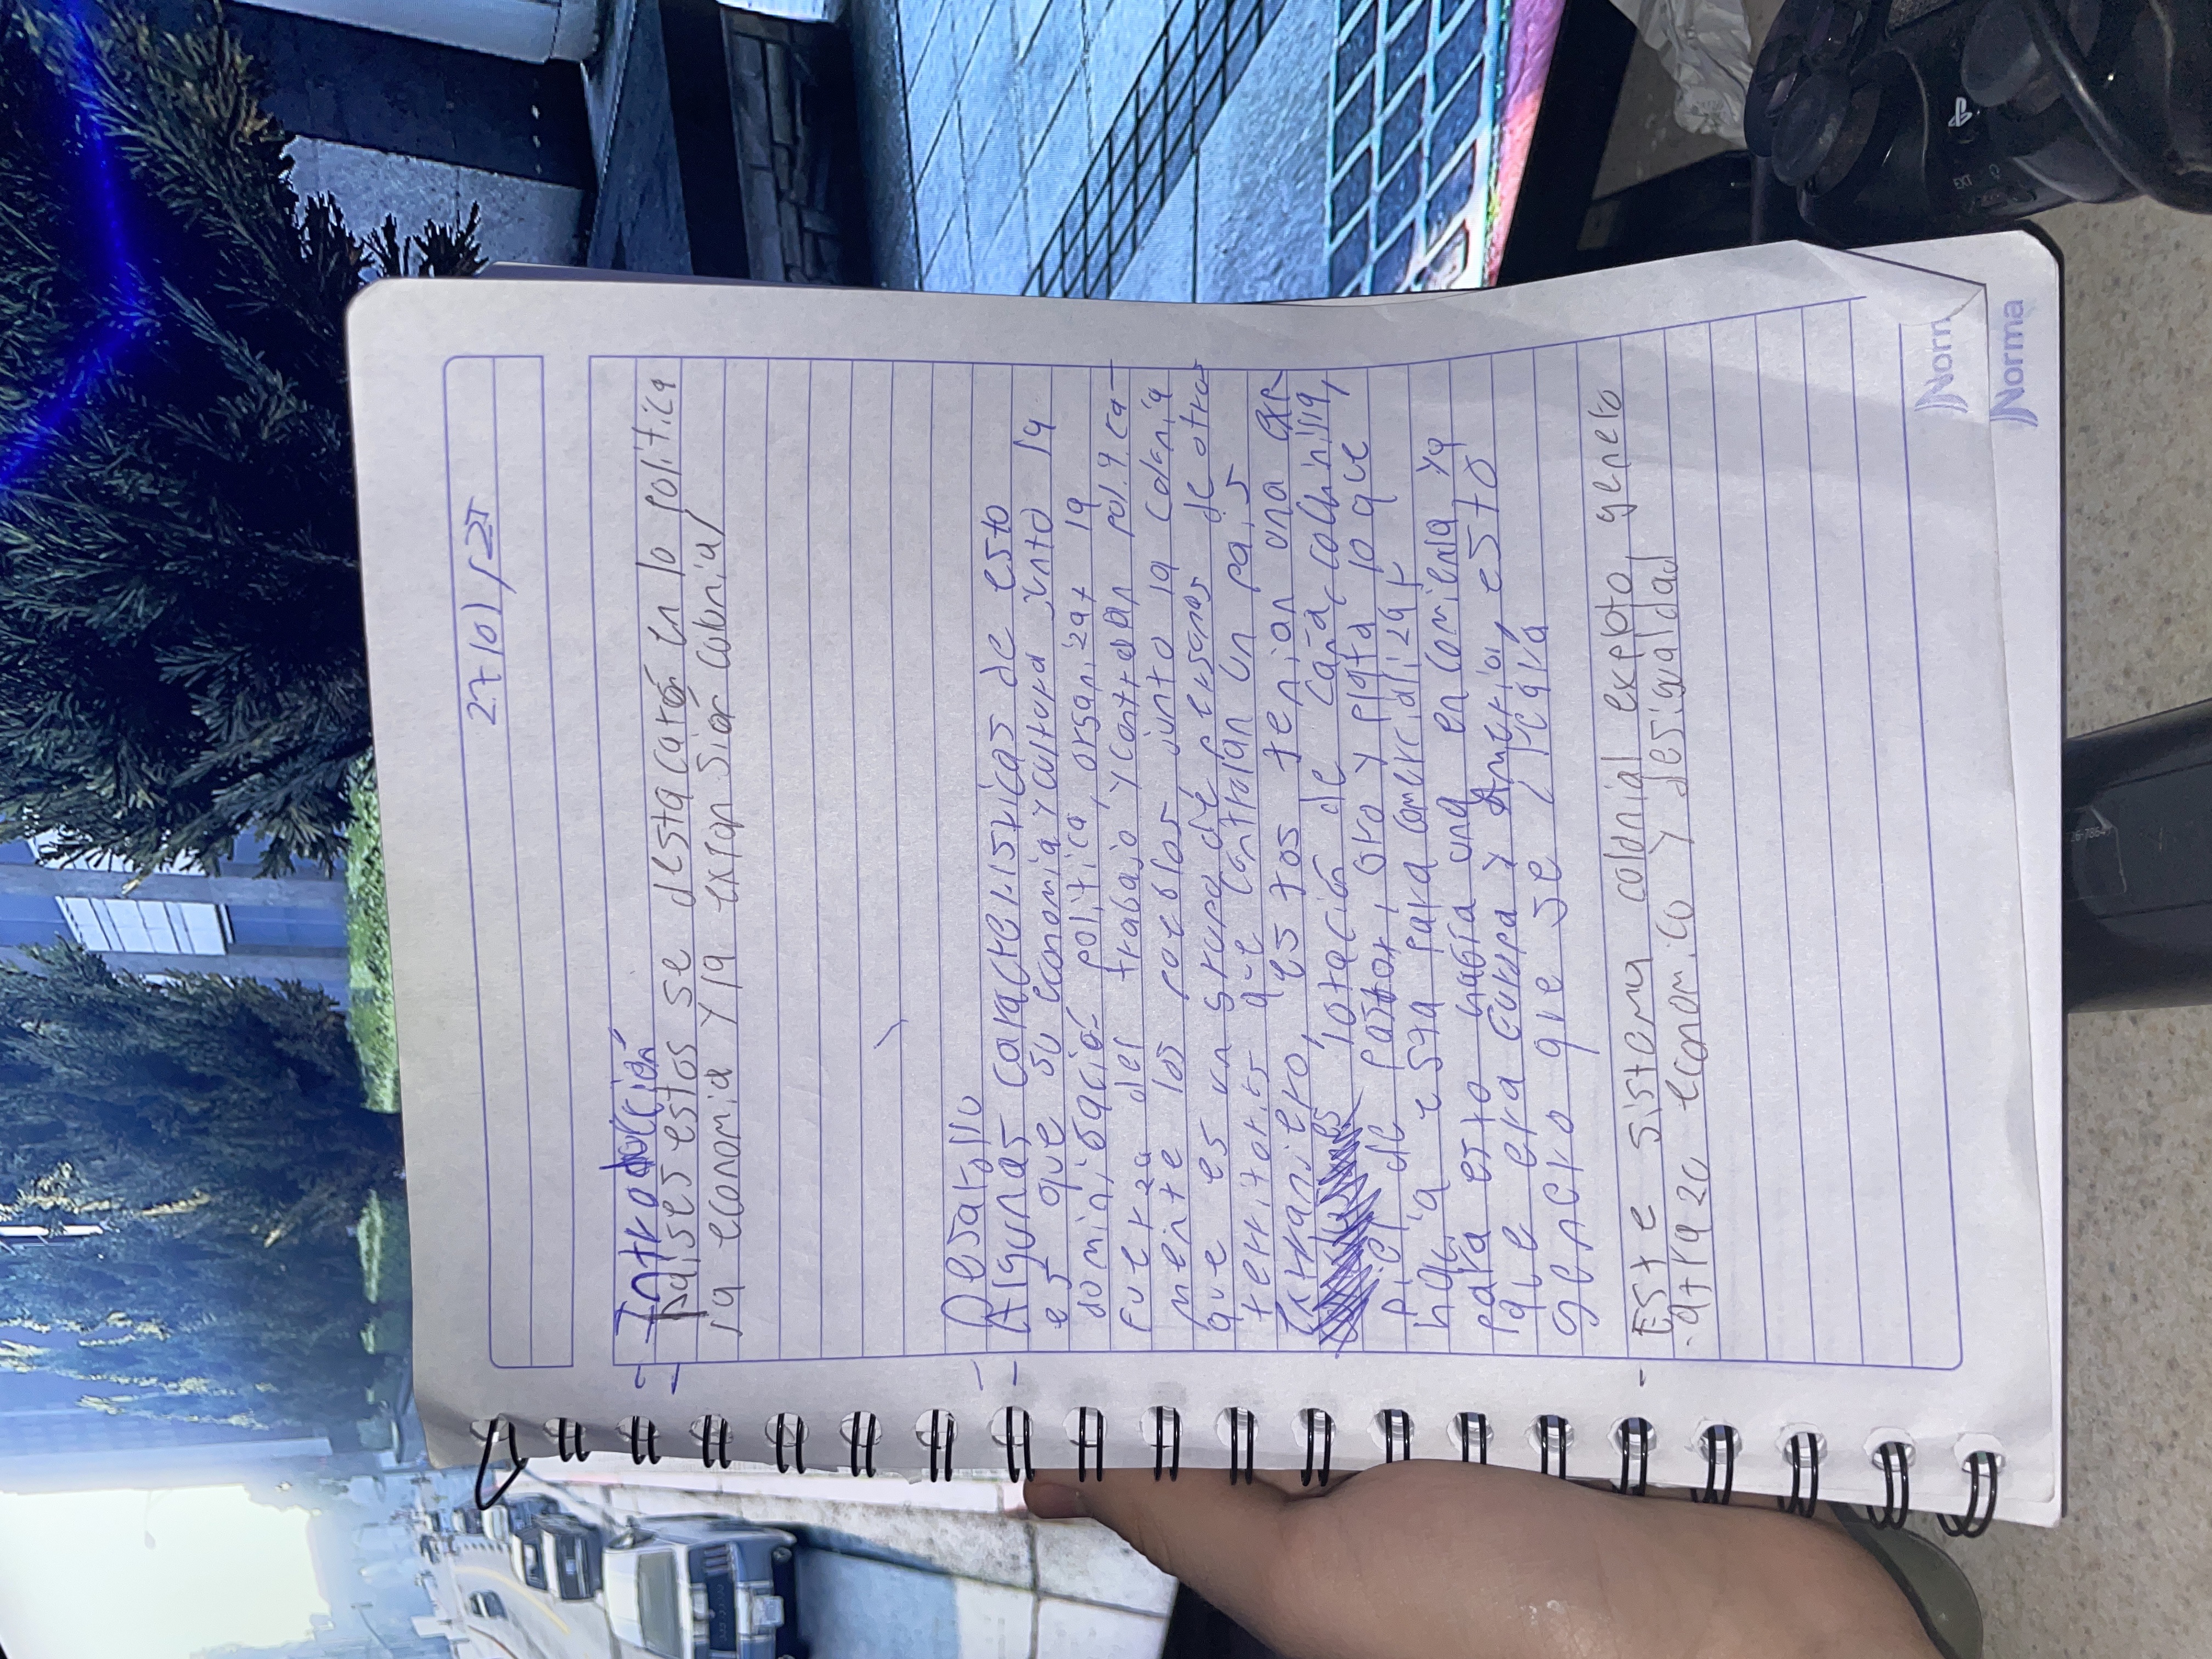 27/01/25
- Introducción
- paises estos se destacarón en lo politica
la economia y la expan sión colonial
- Desarollo
- Algunas caracteristicas de esto
es que su economia y cultura junto la
politica, organizar la
fuerza del trabajo y controlan
mente los pueblos junto la colonia
que es un grupo de personas de otros
territorios que controlan un pais
Extranjero, estos tenian una exp
lotación de caña, colchinilla,
piel de , oro y plata lo que
hacia esta para comercializar
para esto habia una encomienda ya
que era Europa y America, esto
genero que se
- Este sistema colonial expepto, genero
atrazo economico y desigualdad
Norma
Norma
EXT